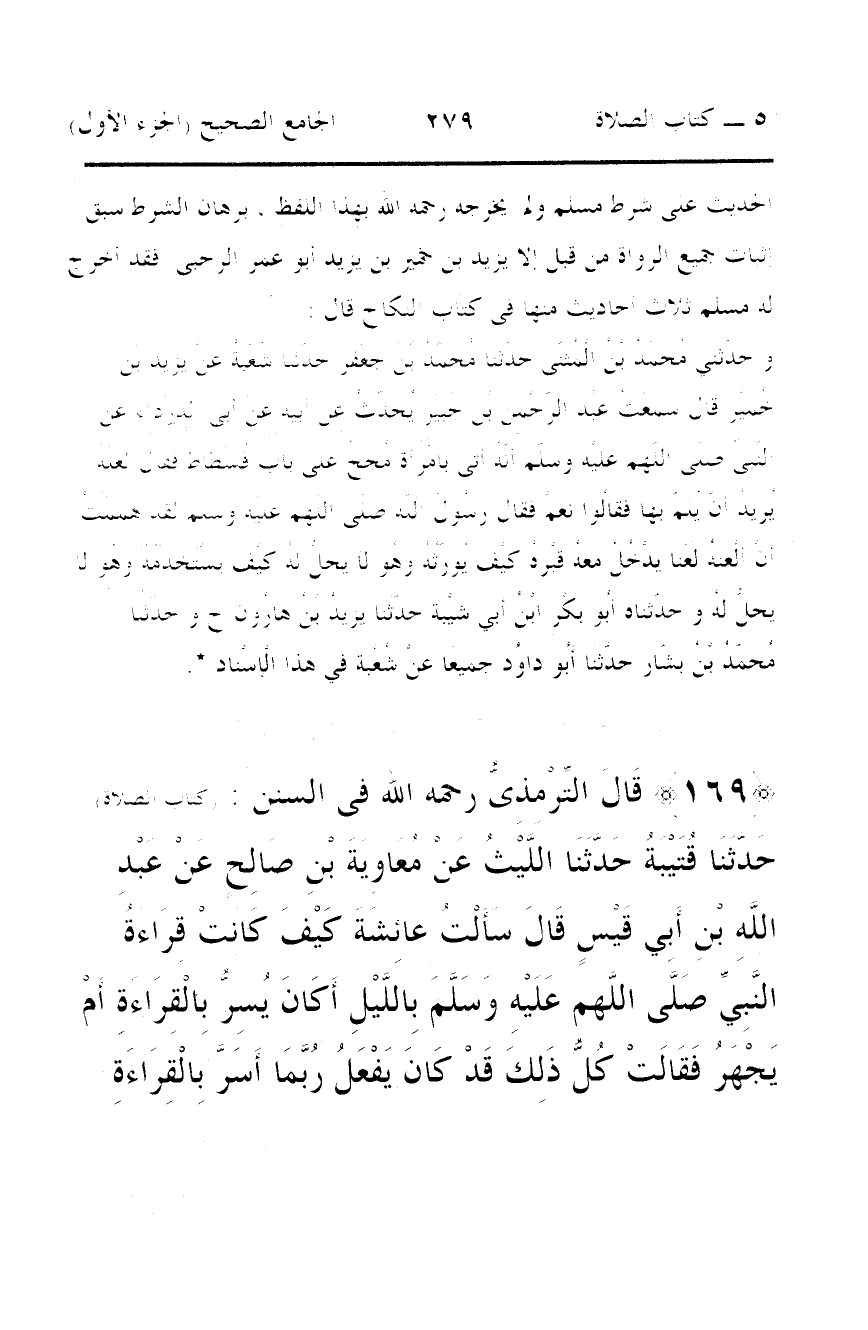 ٥ ــ كتاب الصلاة ٢٧٩ الجامع الصحيح (الجزء الأول)
الحديث على شرط مسلم ولم يخرجه رحمه الله بهذا اللفظ . برهان الشرط سبق
إثبات جميع الرواة من قبل إلا يزيد بن خمير بن يزيد أبو عمر الرحبى فقد أخرج
له مسلم ثلاث أحاديث منها فى كتاب النكاح قال :
و حدثني محمد بن المثنى حدثنا محمد بن جعفر حدثنا شعبة عن يزيد بن
خمير قال سمعت عبد الرحمن بن جبير يحدث عن أبيه عن أبي الدرداء عن
النبي صلى اللهم عليه وسلم أنه أتى بامرأة مجح على باب فسطاط فقال لعله
يريد أن يلم بها فقالوا نعم فقال رسول الله صلى اللهم عليه وسلم لقد هممت
أن ألعنه لعنا يدخل معه قبره كيف يورثه وهو لا يحل له كيف يستخدمه وهو لا
يحل له و حدثناه أبو بكر ابن أبي شيبة حدثنا يزيد بن هارون ح و حدثنا
محمد بن بشار حدثنا أبو داود جميعا عن شعبة في هذا الإسناد * .
﴿١٦٩﴾ قَالَ التِّرْمذىُّ رحمه الله فى السنن : (كتاب الصلاة)
حَدَّثَنَا قُتَيْبَةُ حَدَّثَنَا اللَّيْثُ عَنْ مُعَاوِيَةَ بْنِ صَالِحٍ عَنْ عَبْدِ
اللَّهِ بْنِ أَبِي قَيْسٍ قَالَ سَأَلْتُ عَائِشَةَ كَيْفَ كَانَتْ قِرَاءَةُ
النَّبِيِّ صَلَّى اللَّهم عَلَيْهِ وَسَلَّمَ بِاللَّيْلِ أَكَانَ يُسِرُّ بِالْقِرَاءَةِ أَمْ
يَجْهَرُ فَقَالَتْ كُلُّ ذَلِكَ قَدْ كَانَ يَفْعَلُ رُبَّمَا أَسَرَّ بِالْقِرَاءَةِ